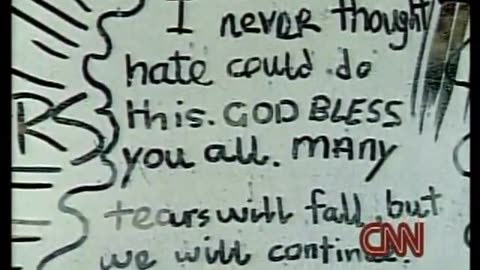 I never thought
hate could do
this. GOD BLESS
RS
you all. MANY
tears will fall, but
we will continue.
CNN